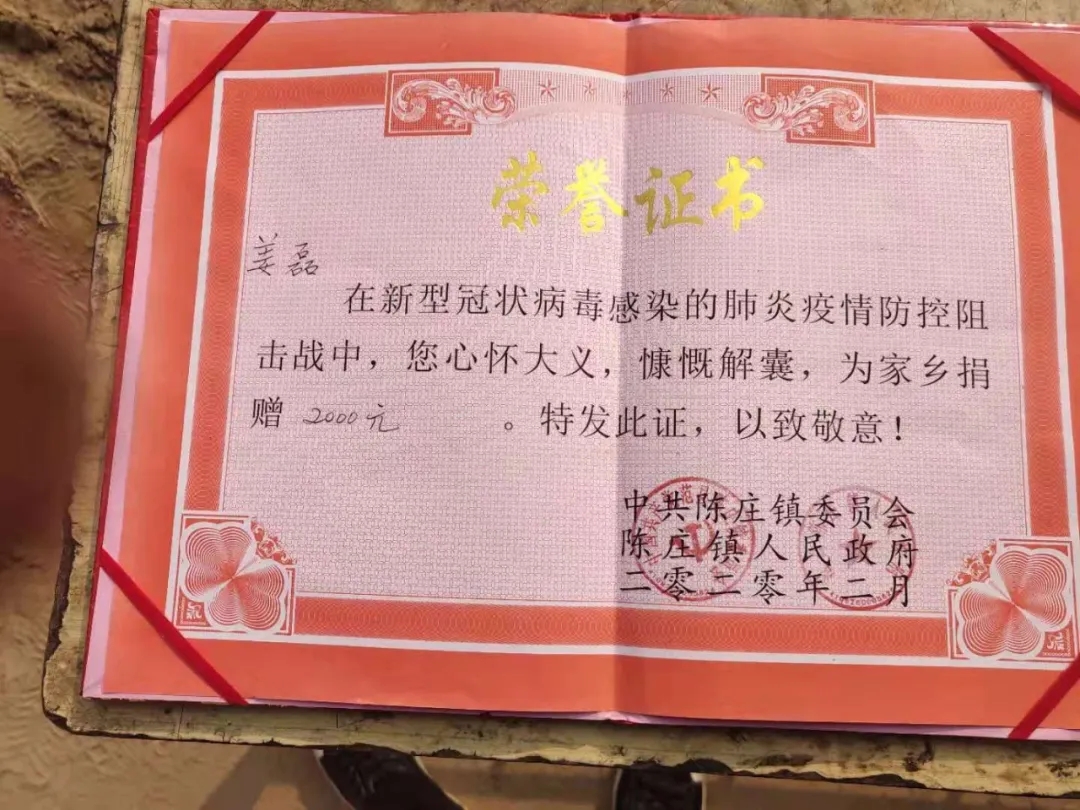 荣誉证书
姜磊
在新型冠状病毒感染的肺炎疫情防控阻
击战中，您心怀大义，慷慨解囊，为家乡捐
赠 2000元 。特发此证，以致敬意！
中共陈庄镇委员会
陈庄镇人民政府
二零二零年二月